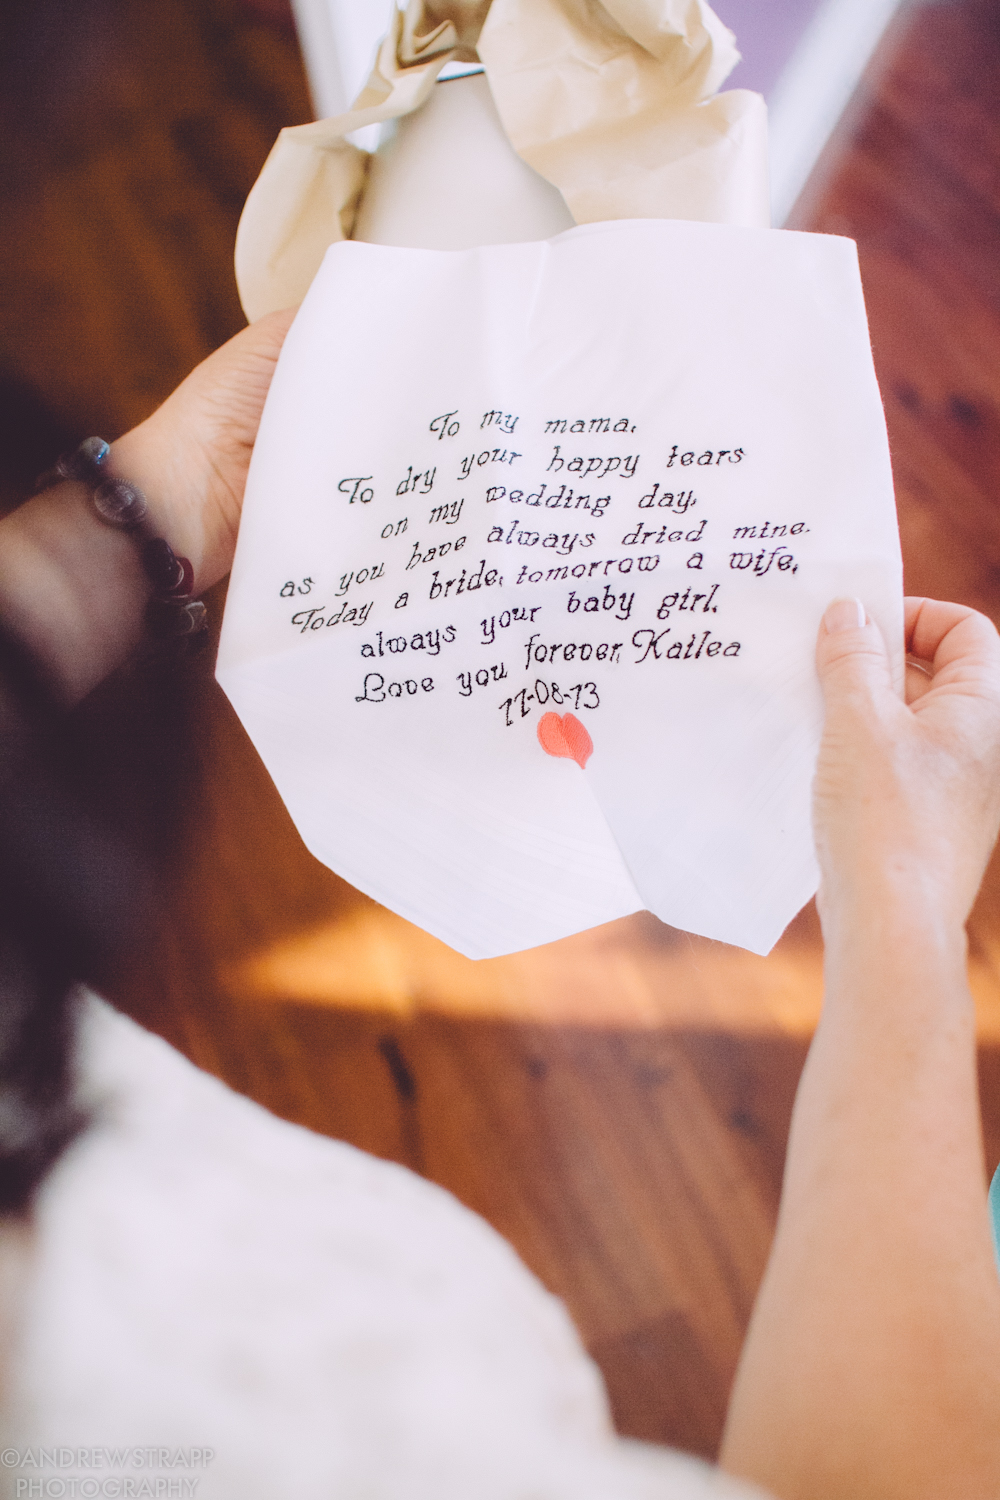 To my mama,
To dry your happy tears
on my wedding day,
as you have always dried mine.
Today a bride, tomorrow a wife,
always your baby girl.
Love you forever, Kailea
11-08-13
©ANDREWSTRAPP
PHOTOGRAPHY